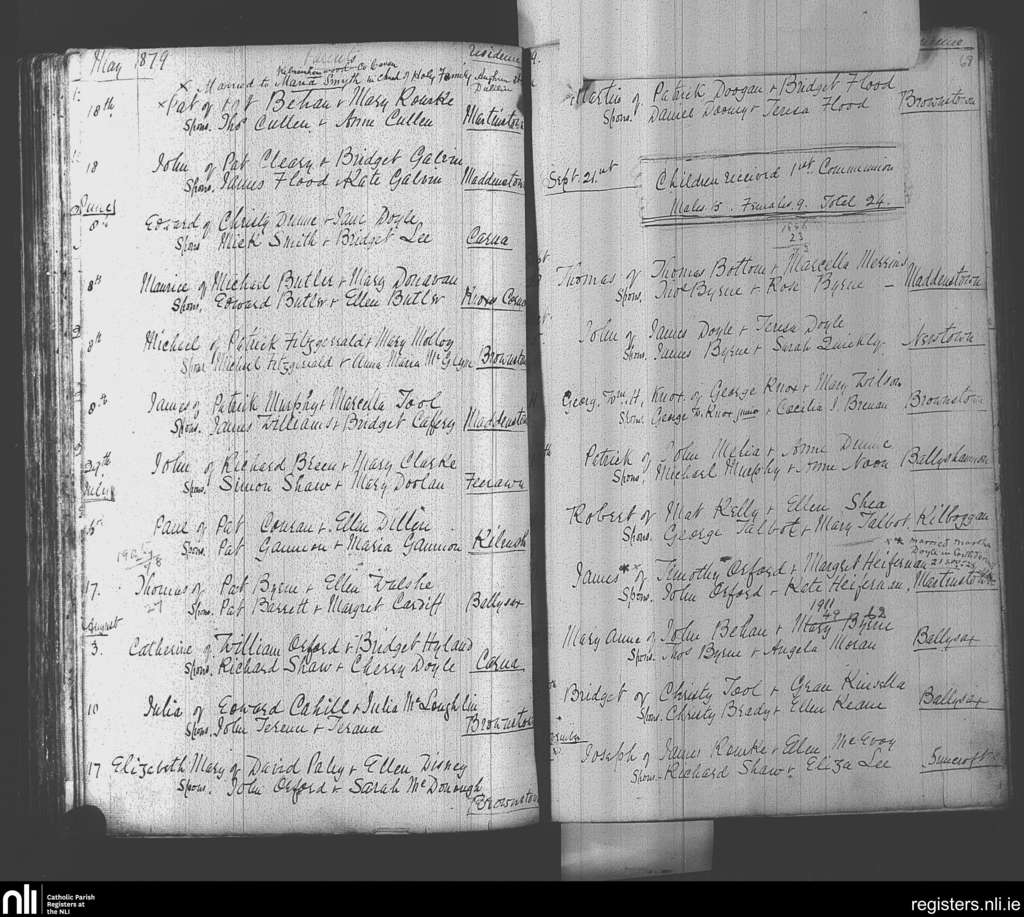 May 1879
Parents
Residence
Co Cavan
x Married to Maria Smyth in church of Holy Family
18th
Pat of Pat Behan + Mary Rourke
Spons. Thos Cullen + Anne Cullen
Martinstown
18
John of Pat Cleary + Bridget Galvin
Spons. James Flood + Kate Galvin
Maddenstown
June
8th
Edward of Christy Dunne + Jane Doyle
Spons. Mick Smith + Bridget Lee
Carna
8th
Maurice of Michael Butler + Mary Donavan
Spons. Edward Butler + Ellen Butler
Knox Carna
8th
Michael of Patrick Fitzgerald + Mary Molloy
Spons Michael Fitzgerald + Anna Maria McGlynn
Brownstown
8th
James of Patrick Murphy + Marcella Tool
Spons. James Williams + Bridget Caffery
Maddenstown
29th
John of Richard Breen + Mary Clarke
Spons. Simon Shaw + Mary Doolan
Feerawn
July
Paul of Pat Conran + Ellen Dillon
Spons. Pat Gannon + Maria Gannon
Kilrush
17.
Thomas of Pat Byrne + Ellen Walshe
Spons. Pat Barrett + Margret Cardiff
Ballysax
August
3.
Catherine of William Orford + Bridget Hyland
Spons. Richard Shaw + Cherry Doyle
Carna
10
Julia of Edward Cahill + Julia McLoughlin
Spons. John Terence + Terance
Brownstown
17
Elizabeth Mary of David Paley + Ellen Disney
Spons. John Orford + Sarah McDonough
Brownstown
68
Martin of Patrick Doogan + Bridget Flood
Spons. Daniel Dooney + Teresa Flood
Brownstown
Sept. 21st
Children received 1st Communion
Males 15. Females 9. Total 24.
23
Thomas of Thomas Bottom + Marcella Merrins
Spons. Thos Byrne + Rose Byrne
Maddenstown
John of James Doyle + Teresa Doyle
Spons. James Byrne + Sarah Quickly
Newtown
Georg. Wm. H. Knox of George Knox + Mary Wilson
Spons. George W. Knox junio + Cacilia I. Brenan
Brownstown
Patrick of John Melia + Anne Dunne
Spons. Michael Murphy + Anne Noon
Ballyshannon
Robert of Mat Kelly + Ellen Shea
Spons. George Talbot + Mary Talbot
Kilboggan
x x married Martha
Doyle in
James xx of Timothy Orford + Margret Heifernan
Spons. John Orford + Kate Heifernan
Martinstown
1911
Mary Anne of John Behan + Mary Byrne
Spons. Thos Byrne + Angela Moran
Ballysax
Bridget of Christy Tool + Grace Kinsella
Spons. Christy Brady + Ellen Keane
Ballysax
Joseph of James Rourke + Ellen McEvoy
Spons. Richard Shaw + Eliza Lee
Suncroft
nli
Catholic Parish
Registers at
the NLI
registers.nli.ie